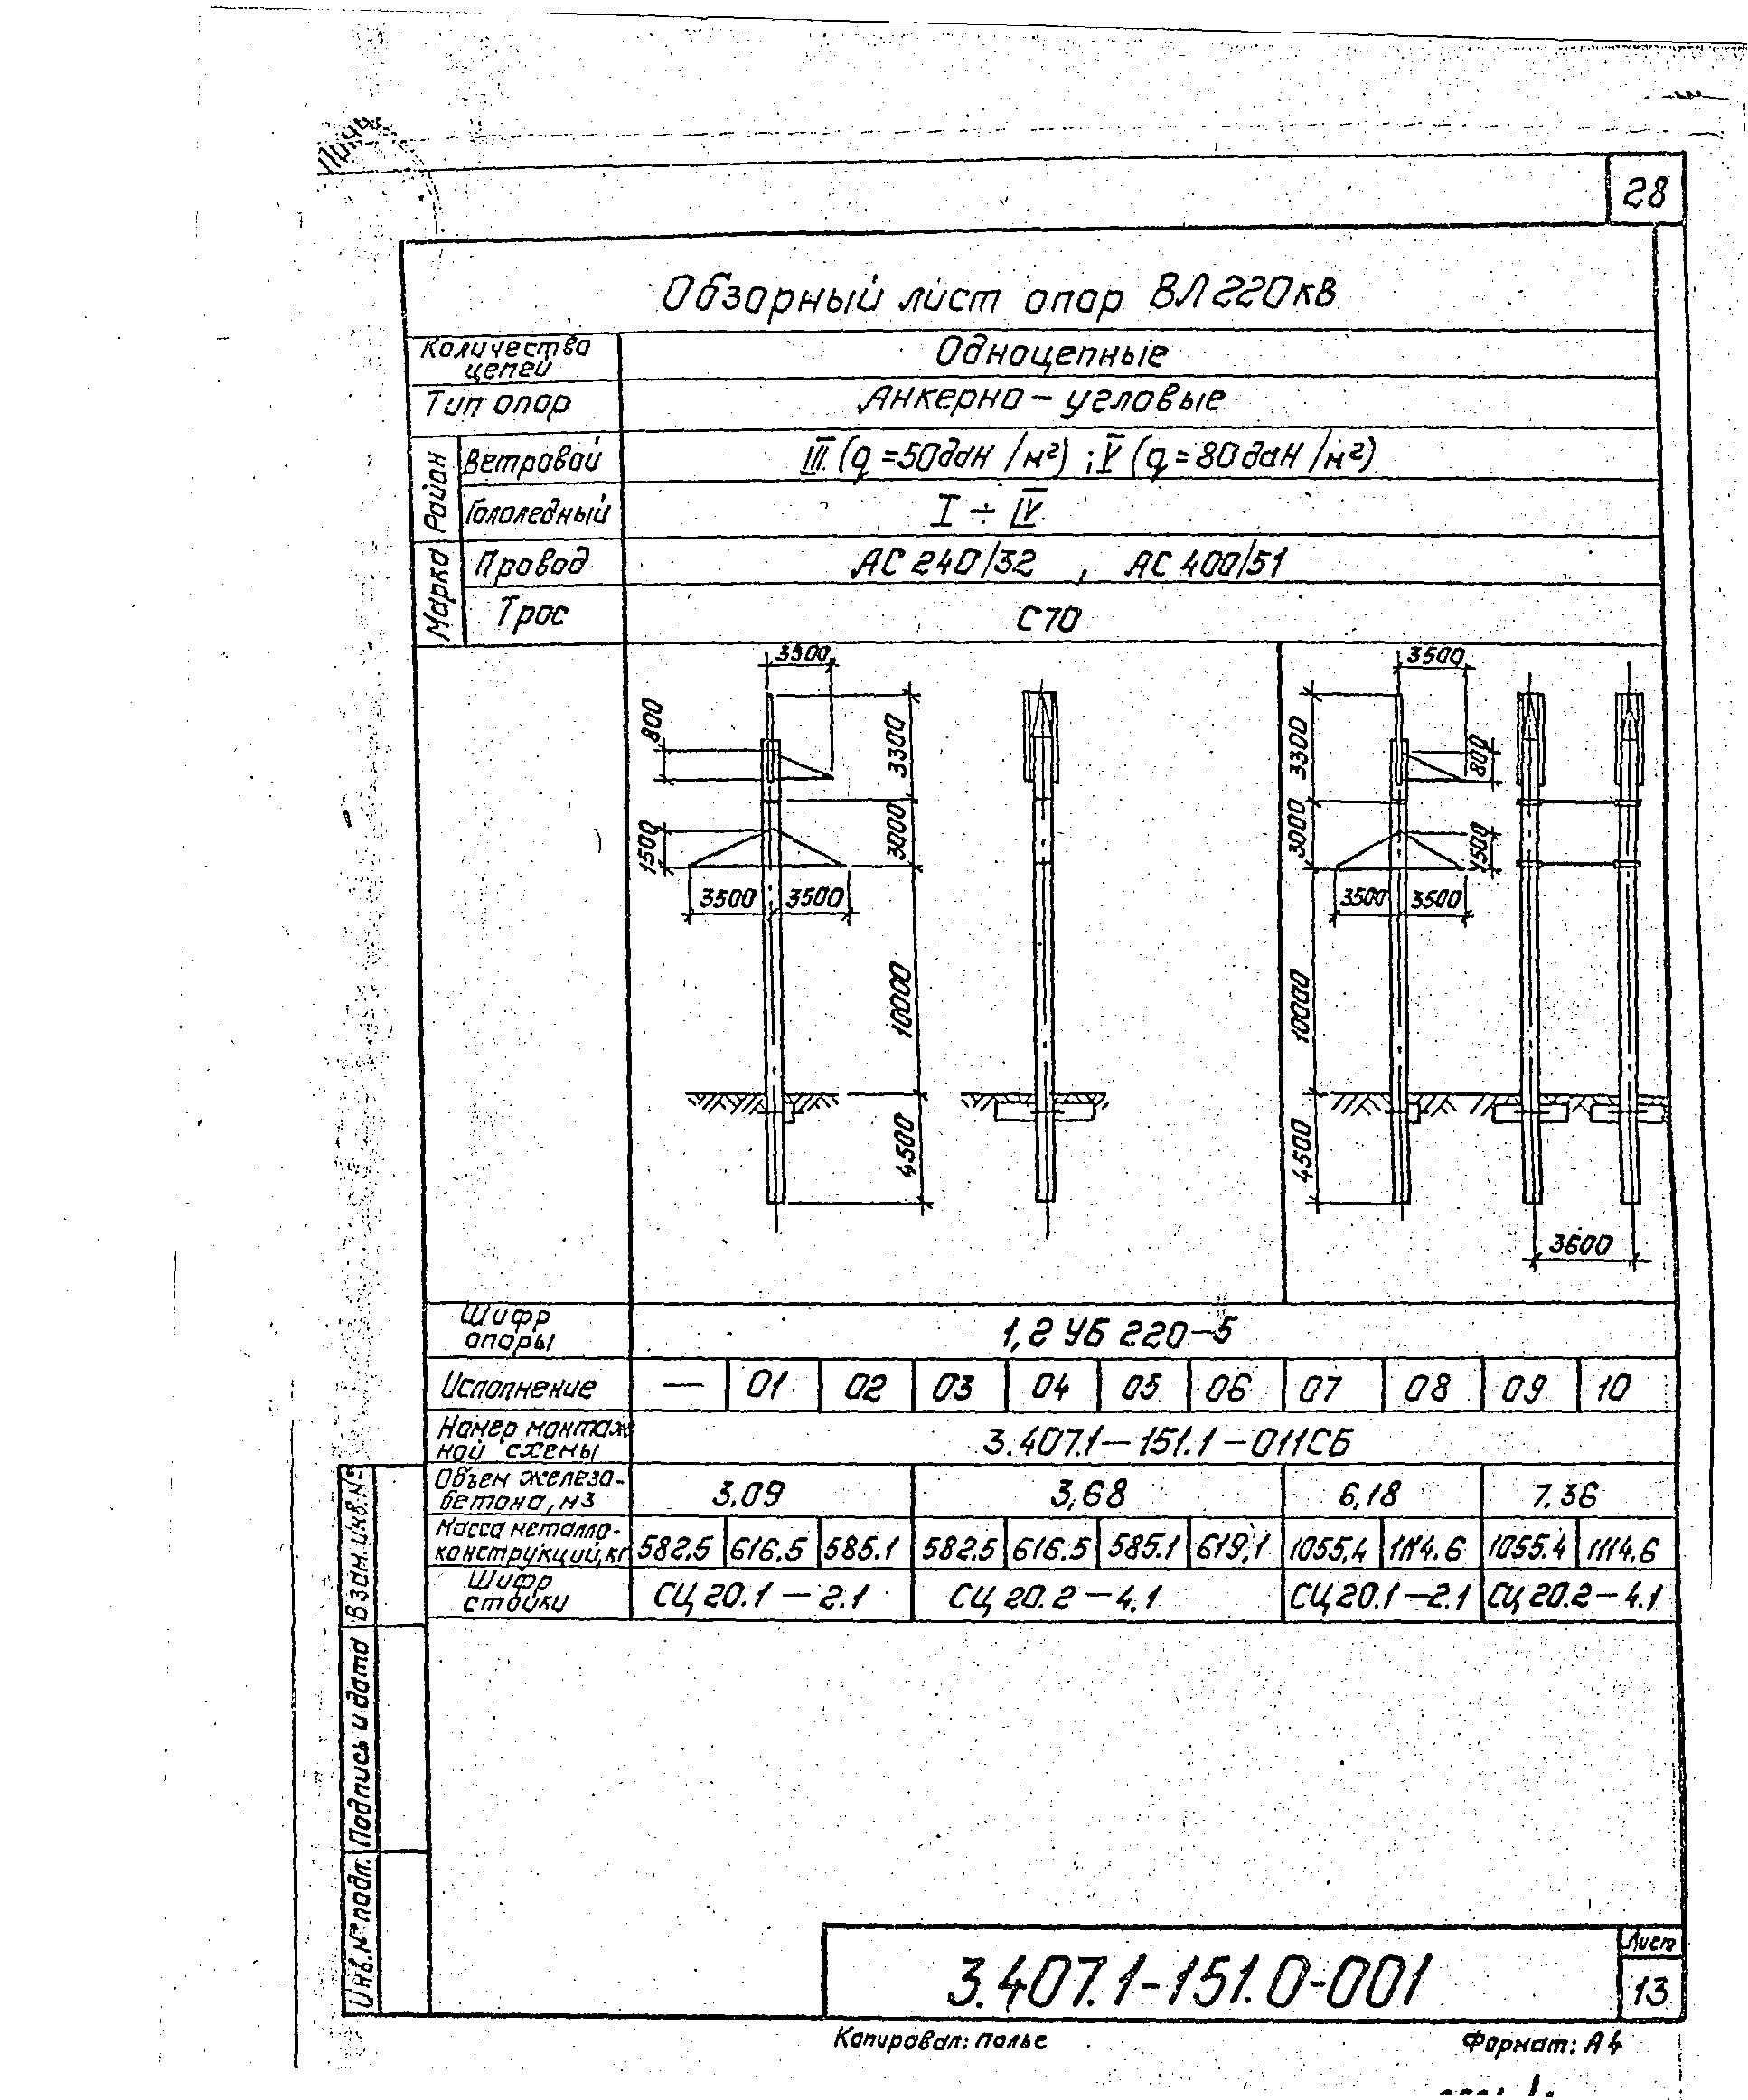 28
Обзорный лист опор ВЛ 220 кВ
Количество цепей
Одноцепные
Тип опор
Анкерно-угловые
Район
Ветровой
III (q=50 даН/м²); V (q=80 даН/м²)
Гололедный
I ÷ IV
Марка
Провод
АС 240/32 , АС 400/51
Трос
С70
3500
800
3300
1500
3000
3500
3500
10000
4500
3500
3300
800
3000
1500
3500
3500
10000
4500
3600
Шифр опоры
1,2 УБ 220-5
Исполнение
— 01 02 03 04 05 06 07 08 09 10
Номер монтажной схемы
3.407.1-151.1-011СБ
Объем железобетона, м3
3.09 3,68 6,18 7.36
Масса металлоконструкций, кг
582.5 616.5 585.1 582.5 616.5 585.1 619,1 1055,4 1114.6 1055.4 1114.6
Шифр стойки
СЦ 20.1-2.1 СЦ 20.2-4.1 СЦ 20.1-2.1 СЦ 20.2-4.1
Взам. инв. №
Подпись и дата
Инв. № подл.
3.407.1-151.0-001
Лист
13
Копировал: Полье
Формат: А4